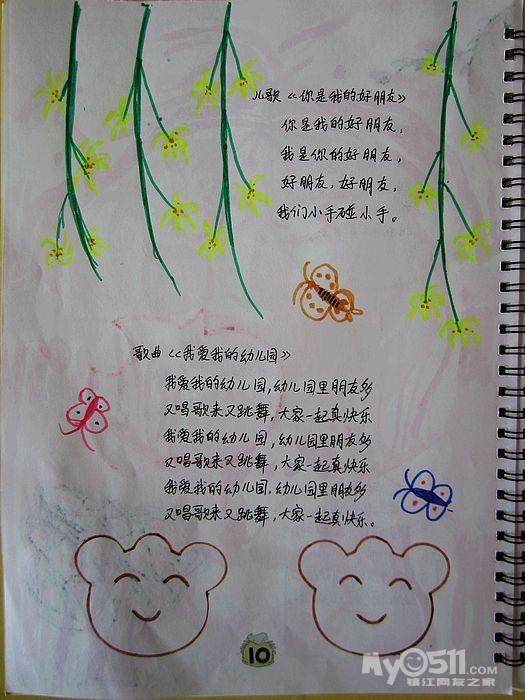 儿歌《你是我的好朋友》
你是我的好朋友,
我是你的好朋友,
好朋友,好朋友,
我们小手碰小手。
歌曲《我爱我的幼儿园》
我爱我的幼儿园,幼儿园里朋友多
又唱歌来又跳舞,大家一起真快乐
我爱我的幼儿园,幼儿园里朋友多
又唱歌来又跳舞,大家一起真快乐
我爱我的幼儿园,幼儿园里朋友多
又唱歌来又跳舞,大家一起真快乐。
10
My0511.com
镇江网友之家